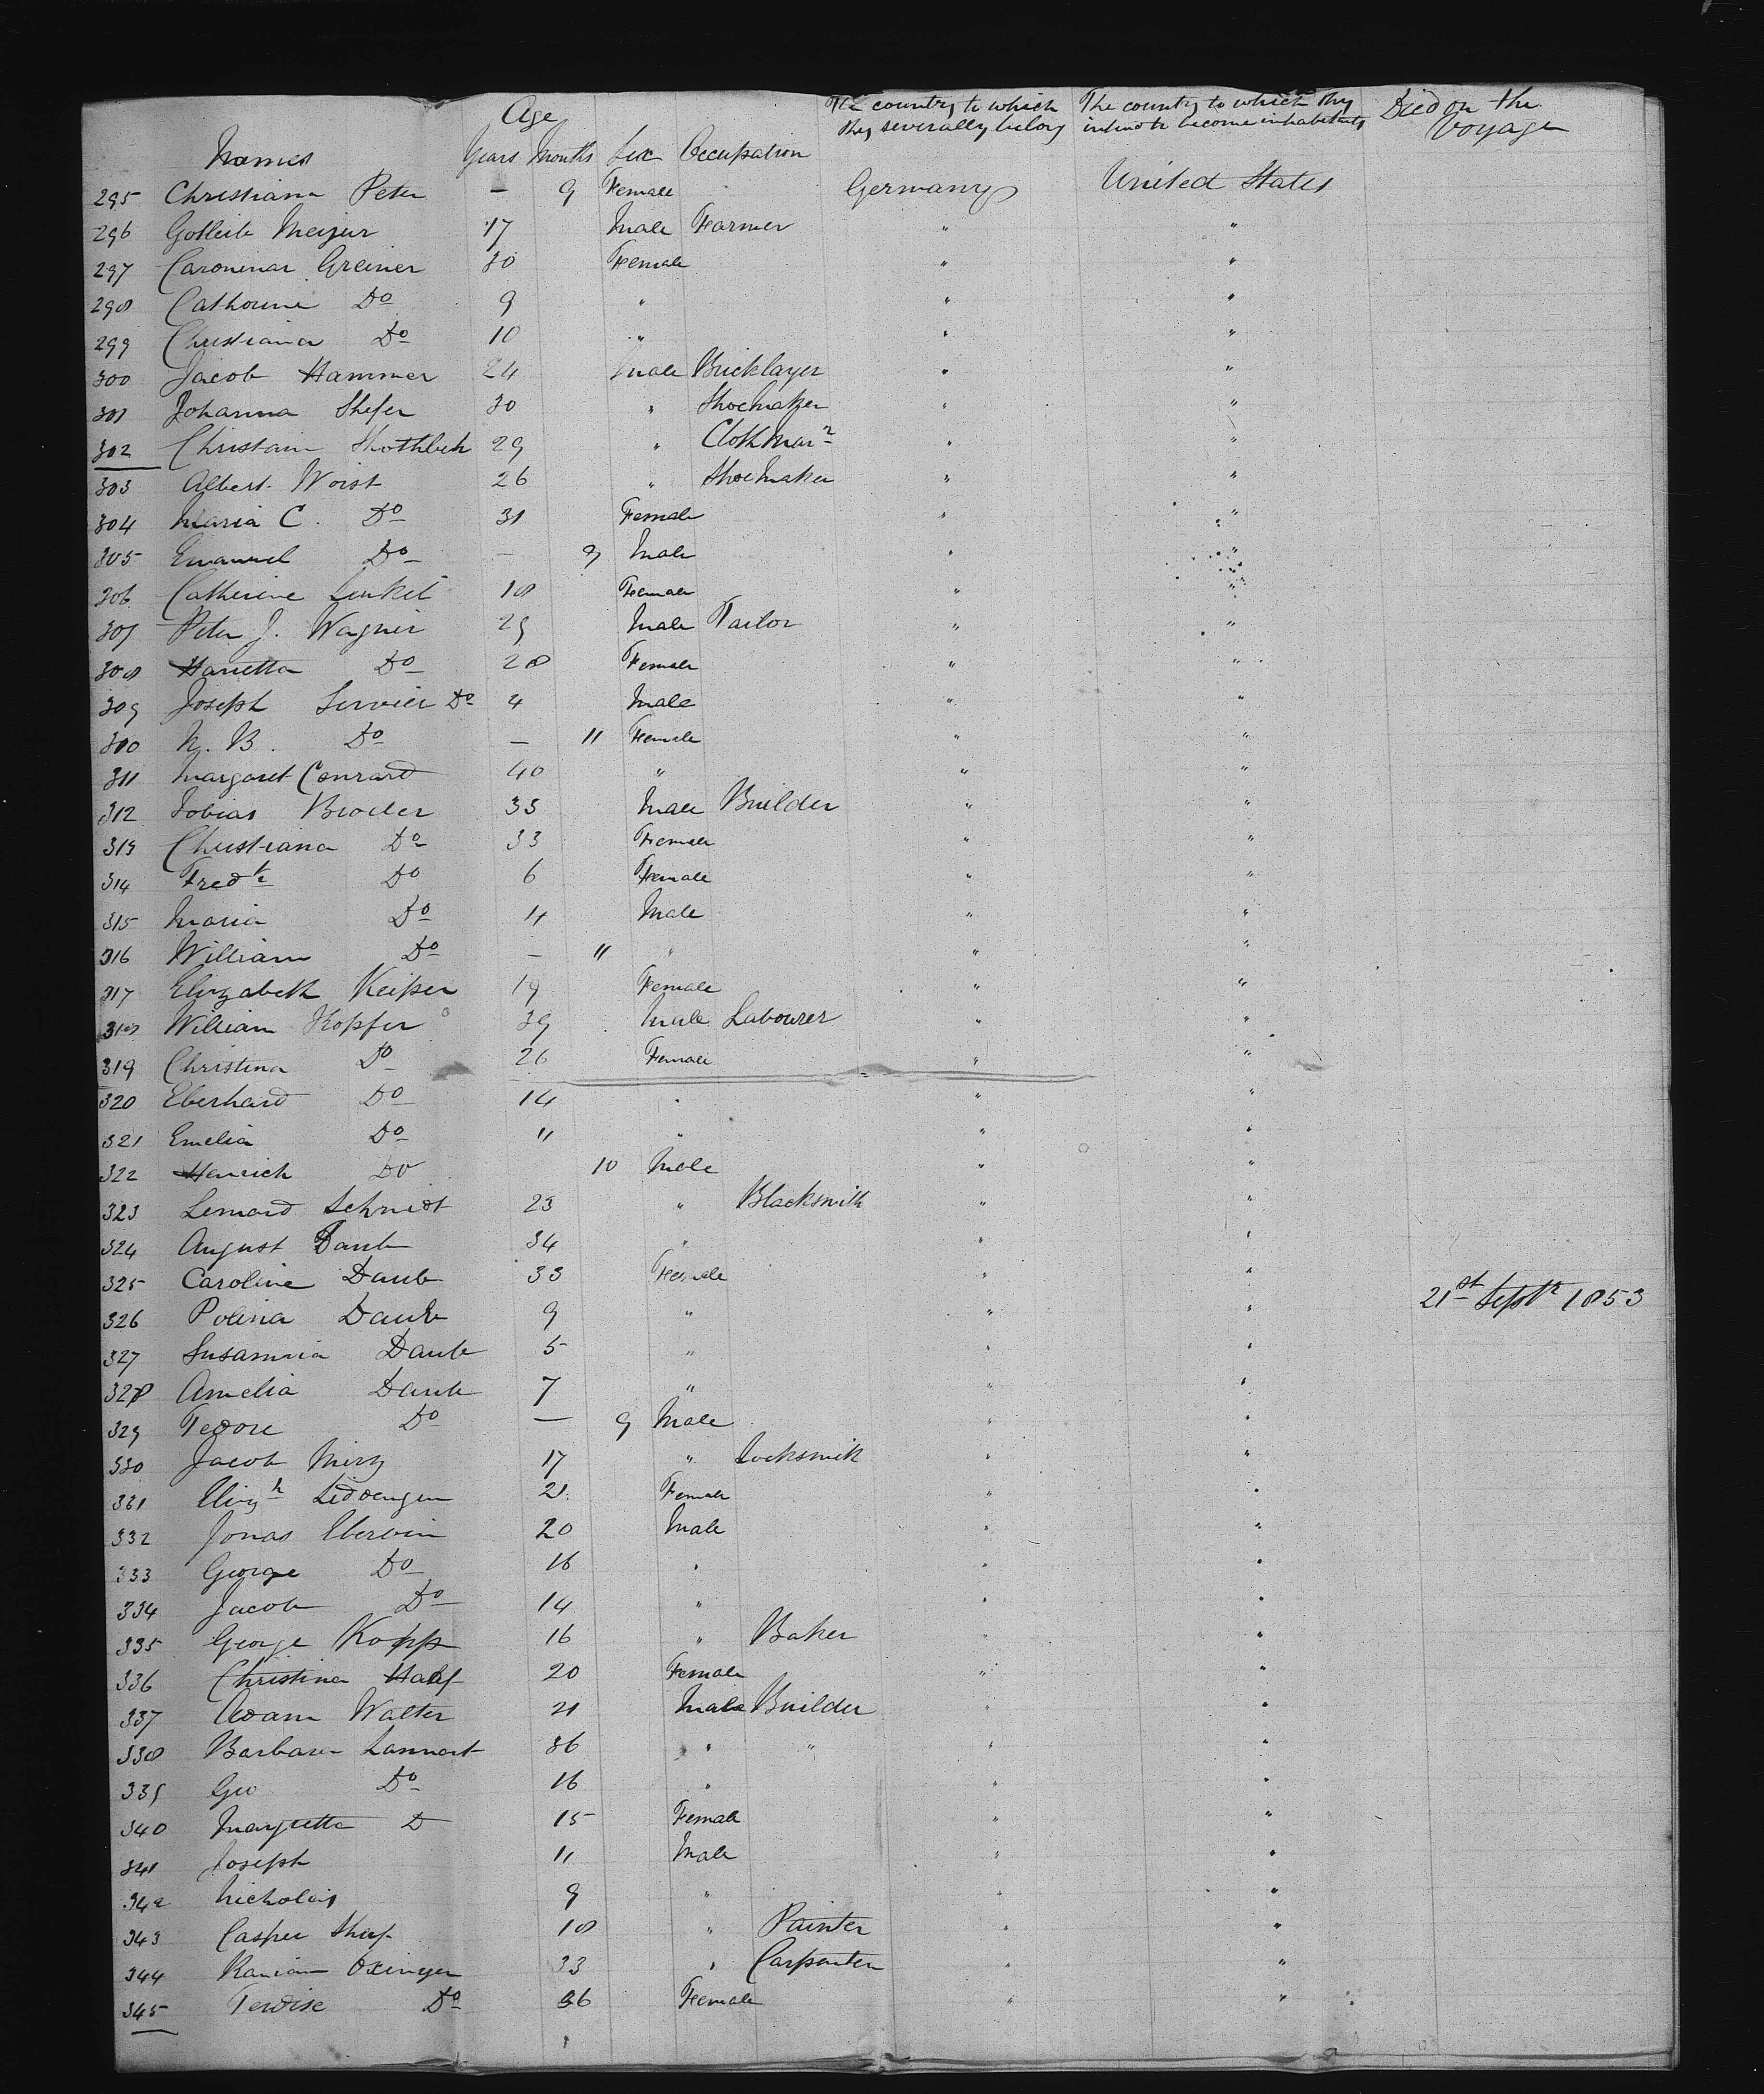 Age
The country to which The country to which they Died on the
they severally belong intend to become inhabitants Voyage
Names Years Months Sex Occupation
295 Christiana Peter — 9 Female Germany United States
296 Gotleib Meyer 17 Male Farmer " "
297 Greiner 30 Female " "
298 Do 9 " " "
299 Christiana Do 10 " " "
300 Jacob Hammer 24 Male Bricklayer " "
301 Johanna Shefer 30 " Shoemaker " "
302 Christain 29 " " "
303 Albert Woist 26 " Shoemaker " "
304 Maria C. Do 31 Female " "
305 Emanuel Do — 9 Male " "
306 Catherine 18 Female " "
307 Peter J. Wagner 29 Male Tailor " "
308 Harietta Do 28 Female " "
309 Joseph Do 4 Male " "
310 N. B. Do — 11 Female " "
311 Margaret Conrard 40 " " "
312 Tobias Broder 33 Male Builder " "
313 Christiana Do 33 Female " "
314 Fredk Do 6 Female " "
315 Maria Do 4 Male " "
316 William Do — 11 " " "
317 Elizabeth Keiper 19 Female " "
318 William Kopfer 39 Male Labourer " "
319 Christina Do 26 Female " "
320 Eberhard Do 14 " " "
321 Emelia Do 11 " " "
322 Henrich Do 10 Male " "
323 Lenard Schmidt 23 " Blacksmith " "
324 August Daub 34 " " "
325 Caroline Daub 33 Female " "
326 Polina Daub 9 " " " 21st Septr 1853
327 Susannia Daub 5 " " "
328 Amelia Daub 7 " " "
329 Tedore Do — 9 Male " "
330 Jacob Mirz 17 " Locksmith " "
331 Elizh 21 Female " "
332 Jonas Eberwin 20 Male " "
333 George Do 16 " " "
334 Jacob Do 14 " " "
335 George Kopp 16 " Baker " "
336 Christina 20 Female " "
337 Adam Walter 21 Male Builder " "
338 Barbara Lannert 36 " " " "
339 Geo Do 16 " " "
340 Margretta D 15 Female " "
341 Joseph 11 Male " "
342 Nicholas 9 " " "
343 Casper 18 " Painter " "
344 Oxinger 33 " Carpenter " "
345 Do 36 Female " "